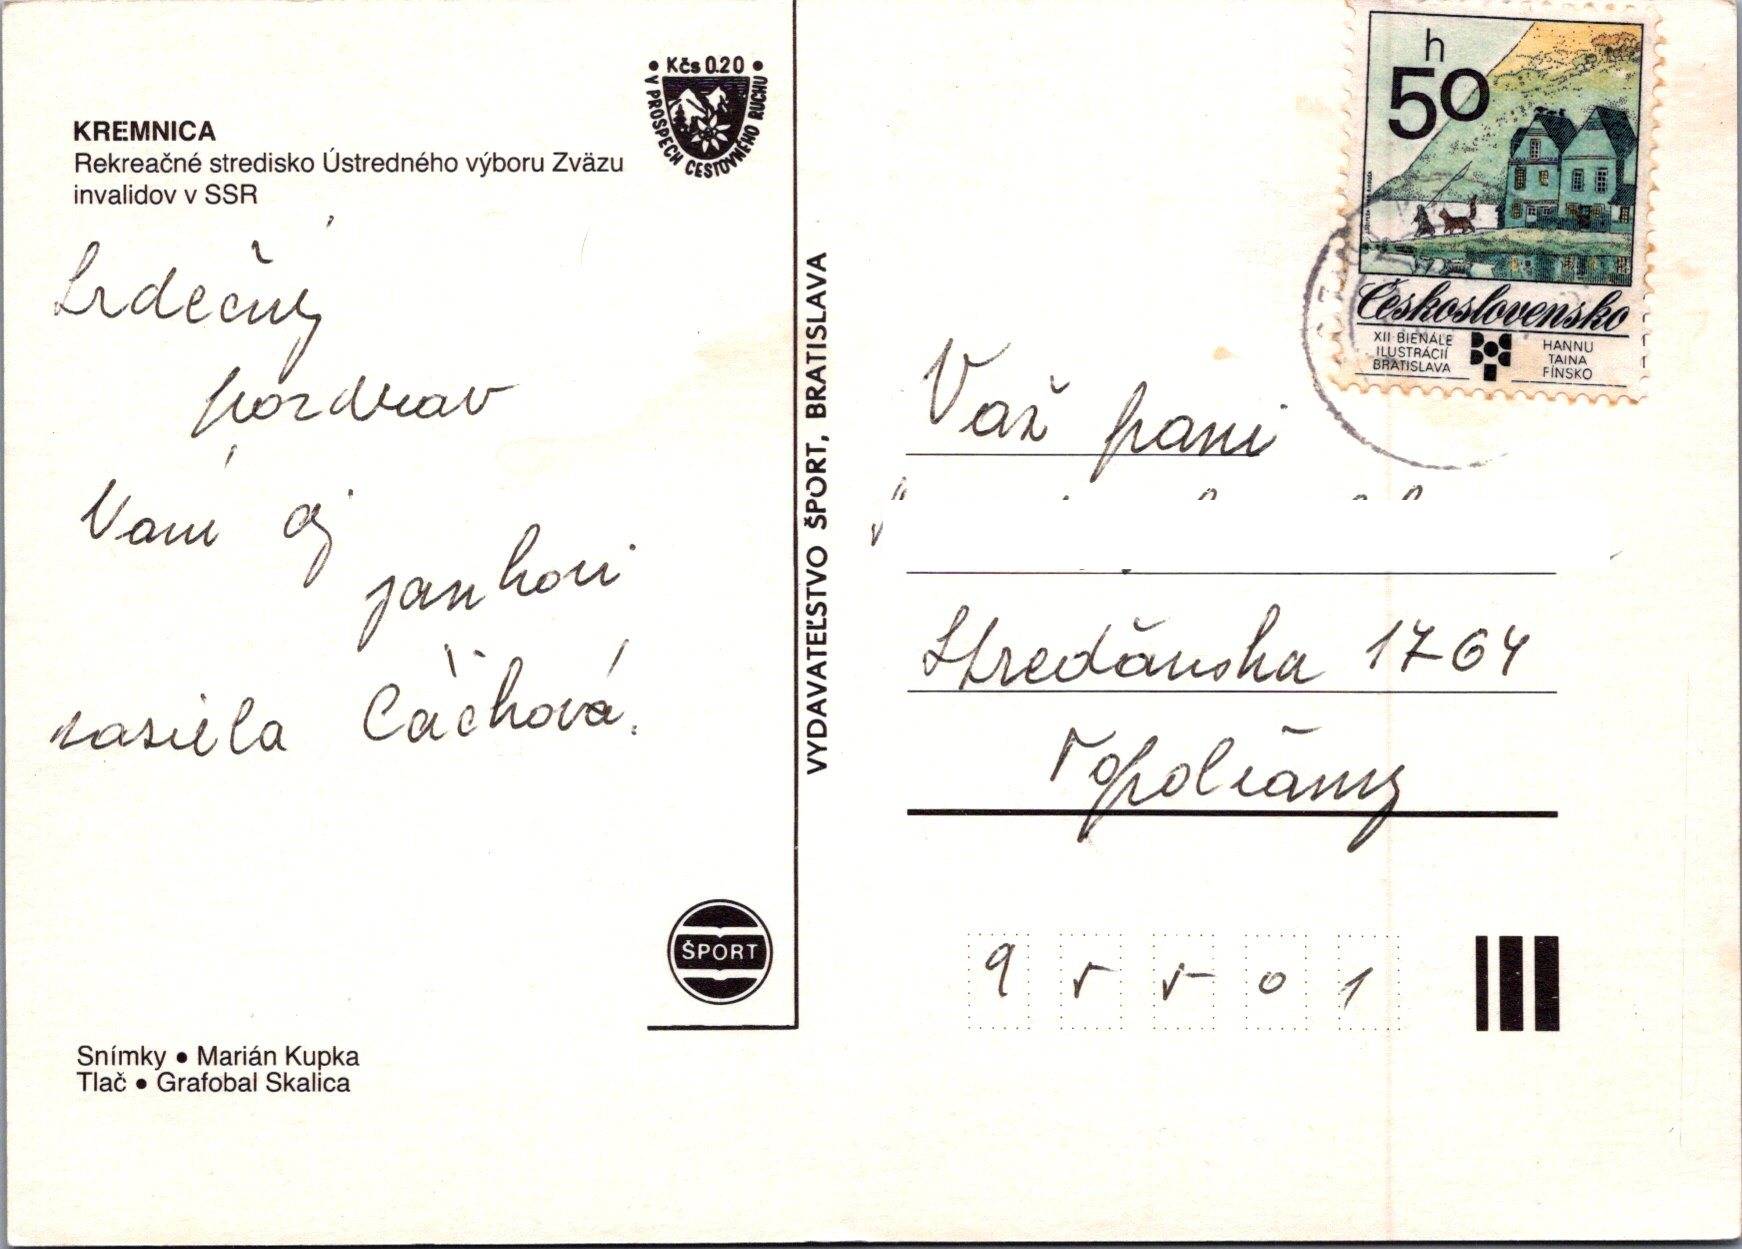 KREMNICA
Rekreačné stredisko Ústredného výboru Zväzu
invalidov v SSR
• Kčs 0.20 •
V PROSPECH CESTOVNÉHO RUCHU
Srdečný
pozdrav
Vám aj
jankovi
zasiela Cáchová.
ŠPORT
Snímky • Marián Kupka
Tlač • Grafobal Skalica
VYDAVATEĽSTVO ŠPORT, BRATISLAVA
h
50
Československo
XII BIENÁLE
ILUSTRÁCIÍ
BRATISLAVA
HANNU
TAINA
FÍNSKO
Váž pani
Stredánska 1764
Topolčány
95501